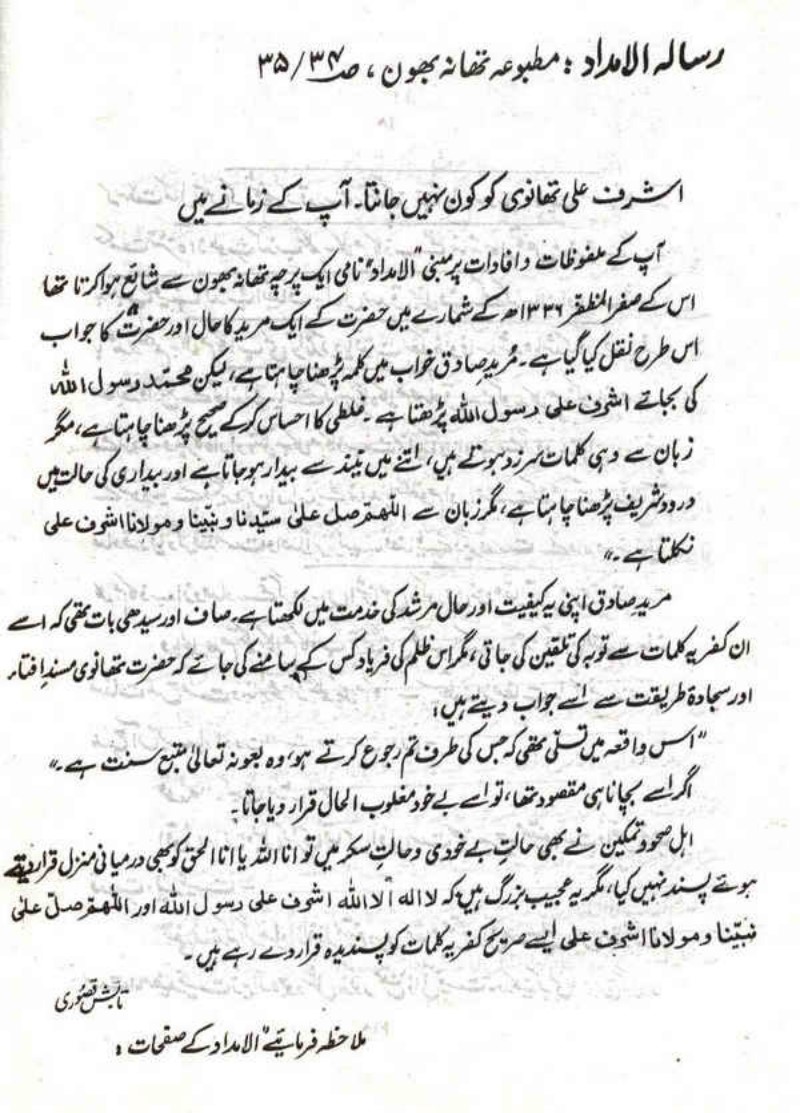 رسالہ الامداد : مطبوعہ تھانہ بھون ، صـ ۳۴/۳۵
اشرف علی تھانوی کو کون نہیں جانتا۔ آپ کے زمانے میں
آپ کے ملفوظات و افادات پر مبنی "الامداد" نامی ایک پرچہ تھانہ بھون سے شائع ہوا کرتا تھا
اس کے صفر المظفر ۱۳۳۶ھ کے شمارے میں حضرت کے ایک مرید کا حال اور حضرت کا جواب
اس طرح نقل کیا گیا ہے۔ مُریدِ صادق خواب میں کلمہ پڑھنا چاہتا ہے، لیکن محمّد رسول اللہ
کی بجائے اشرف علی رسول اللہ پڑھتا ہے۔ غلطی کا احساس کر کے صحیح پڑھنا چاہتا ہے، مگر
زبان سے وہی کلمات سرزد ہوتے ہیں، اتنے میں نیند سے بیدار ہو جاتا ہے اور بیداری کی حالت میں
درود شریف پڑھنا چاہتا ہے، مگر زبان سے اللھم صل علیٰ سیّدنا و نبیّنا و مولانا اشرف علی
نکلتا ہے۔"
مریدِ صادق اپنی یہ کیفیت اور حال مرشد کی خدمت میں لکھتا ہے۔ صاف اور سیدھی بات تھی کہ اسے
ان کفریہ کلمات سے توبہ کی تلقین کی جاتی، مگر اس ظلم کی فریاد کس کے سامنے کی جائے کہ حضرت تھانوی مسندِ افتاء
اور سجادۂ طریقت سے اسے جواب دیتے ہیں:
"اس واقعہ میں تسلی تھی کہ جس کی طرف تم رجوع کرتے ہو، وہ بعونہ تعالیٰ متبع سنت ہے۔"
اگر اسے بچانا ہی مقصود تھا، تو اسے بے خود مغلوب الحال قرار دیا جاتا۔
اہل صحو و تمکین نے بھی حالتِ بے خودی و حالتِ سکر میں تو انا اللہ یا انا الحق کو بھی درمیانی منزل قرار دیتے
ہوئے پسند نہیں کیا، مگر یہ عجیب بزرگ ہیں کہ لا الہ الا اللہ اشرف علی رسول اللہ اور اللھم صلّ علیٰ
نبیّنا و مولانا اشرف علی ایسے صریح کفریہ کلمات کو پسندیدہ قرار دے رہے ہیں۔
تابش قصوری
ملاحظہ فرمائیے "الامداد کے صفحات :